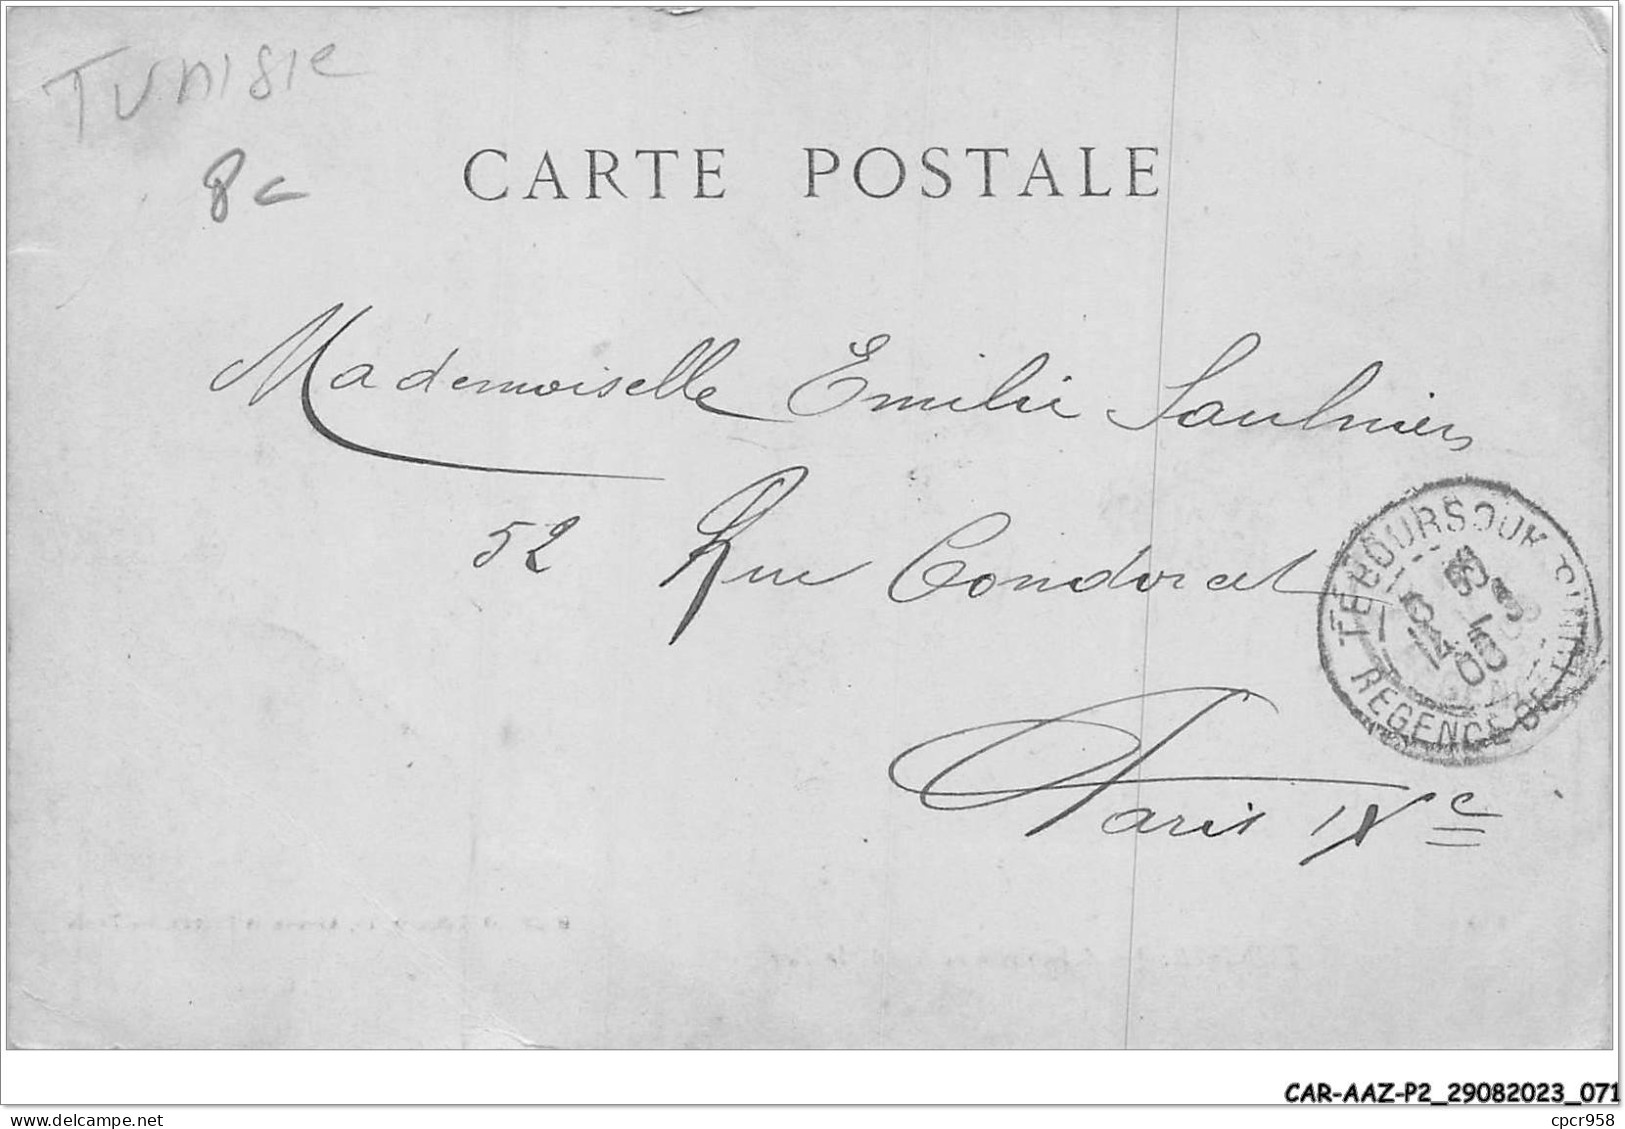 Tunisie
8c
CARTE POSTALE
Mademoiselle Emilie Saulnier
52 Rue Condorcet
Paris IXe
TÉBOURSOUK
REGENCE DE TUNIS
CAR-AAZ-P2_29082023_071
www.delcampe.net
cpcr958